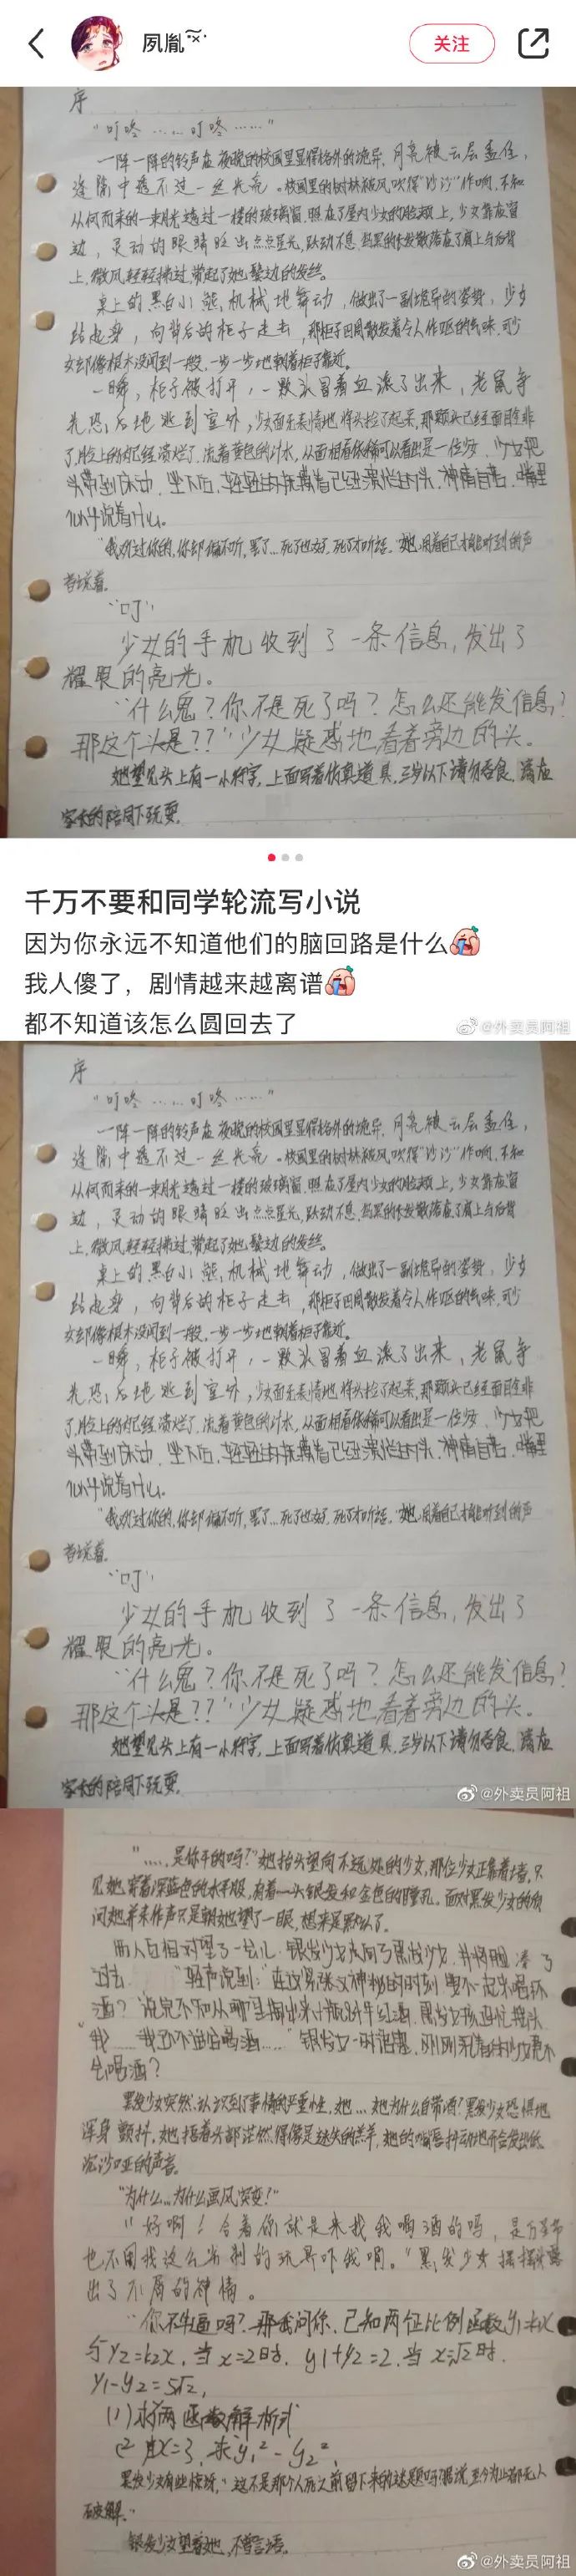 夙胤
关注
序
“叮咚……叮咚……”
一阵一阵的铃声在夜晚的校园里显得格外的诡异，月亮被云层盖住，
缝隙中透不过一丝光亮。校园里的树林被风吹得“沙沙”作响，不知
从何而来的一束月光透过一楼的玻璃窗，照在了屋内少女的脸颊上，少女靠在窗
边，灵动的眼睛眨出点点星光，跃动不息，乌黑的长发散落在了肩上与后背
上，微风轻轻拂过，带起了她鬓边的发丝。
桌上的黑白小熊，机械地舞动，做出了一副诡异的姿势，少女
站起身，向背后的柜子走去，那柜子四周散发着令人作呕的气味，可少
女却像根本没闻到一般，一步一步地朝着柜子靠近。
一瞬，柜子被打开，一颗头冒着血滚了出来，老鼠争
先恐后地逃到室外，少女面无表情地将头捡了起来，那颗头已经面目全非
了，脸上的肉已经溃烂了，流着黄色的汁水，从面相看依稀可以看出是一位少女，少女把
头带到床边，坐下后，轻轻地抚摸着已经溃烂的头，神情自若，嘴里
似乎说着什么。
“我劝过你的，你却偏不听，罢了…死了也好，死了才听话。”她用着自己才能听到的声
音说着。
“叮”
少女的手机收到了一条信息，发出了
耀眼的亮光。
“什么鬼？你不是死了吗？怎么还能发信息？
那这个头是？？”少女疑惑地看着旁边的头。
她望见头上有一小行字，上面写着仿真道具，三岁以下请勿吞食，请在
家长的陪同下玩耍。
千万不要和同学轮流写小说
因为你永远不知道他们的脑回路是什么
我人傻了，剧情越来越离谱
都不知道该怎么圆回去了
@外卖员阿祖
序
“叮咚……叮咚……”
一阵一阵的铃声在夜晚的校园里显得格外的诡异，月亮被云层盖住，
缝隙中透不过一丝光亮。校园里的树林被风吹得“沙沙”作响，不知
从何而来的一束月光透过一楼的玻璃窗，照在了屋内少女的脸颊上，少女靠在窗
边，灵动的眼睛眨出点点星光，跃动不息，乌黑的长发散落在了肩上与后背
上，微风轻轻拂过，带起了她鬓边的发丝。
桌上的黑白小熊，机械地舞动，做出了一副诡异的姿势，少女
站起身，向背后的柜子走去，那柜子四周散发着令人作呕的气味，可少
女却像根本没闻到一般，一步一步地朝着柜子靠近。
一瞬，柜子被打开，一颗头冒着血滚了出来，老鼠争
先恐后地逃到室外，少女面无表情地将头捡了起来，那颗头已经面目全非
了，脸上的肉已经溃烂了，流着黄色的汁水，从面相看依稀可以看出是一位少女，少女把
头带到床边，坐下后，轻轻地抚摸着已经溃烂的头，神情自若，嘴里
似乎说着什么。
“我劝过你的，你却偏不听，罢了…死了也好，死了才听话。”她用着自己才能听到的声
音说着。
“叮”
少女的手机收到了一条信息，发出了
耀眼的亮光。
“什么鬼？你不是死了吗？怎么还能发信息？
那这个头是？？”少女疑惑地看着旁边的头。
她望见头上有一小行字，上面写着仿真道具，三岁以下请勿吞食，请在
家长的陪同下玩耍。
@外卖员阿祖
“……是你干的吗？”她抬头望向不远处的少女，那位少女正靠着墙，只
见她穿着深蓝色的水手服，有着一头银发和金色的瞳孔。面对黑发少女的质
问她并未作声只是朝她望了一眼，想来是默认了。
两人互相对望了一会儿，银发少女走向了黑发少女，并将脸凑了
过去，“轻声说到：“在这紧张又神秘的时刻要不一起来喝杯
酒？”说完不知从哪里掏出来一瓶82年红酒，黑发女孩连忙摇头
“我……我还不适合喝酒……”银发女一时语塞，刚刚 少女竟不
会喝酒？
黑发少女突然认识到了事情的严重性，她…她为什么自带酒？黑发少女恐惧地
浑身颤抖，她捂着头部茫然得像是迷失的羔羊，她的嘴唇抖动地开合发出低
沉沙哑的声音。
“为什么…为什么画风突变！”
“好啊！合着你就是来找我喝酒的吗，是万圣节
也不用找这么劣制的玩具吓我啊。”黑发少女摇摇头露
出了不屑的神情。
“你不牛逼吗？那我问你，已知两个正比例函数y1=k1x
与y2=k2x，当x=2时，y1+y2=2，当x=√2时，
y1-y2=5√2，
(1)求两函数解析式
(2)当x=3，求y1²-y2²。
黑发少女有些惊讶，“这不是那个人死之前留下来的谜题吗？据说至今为止都无人
破解。”
银发少女望着她，不曾言语。
@外卖员阿祖